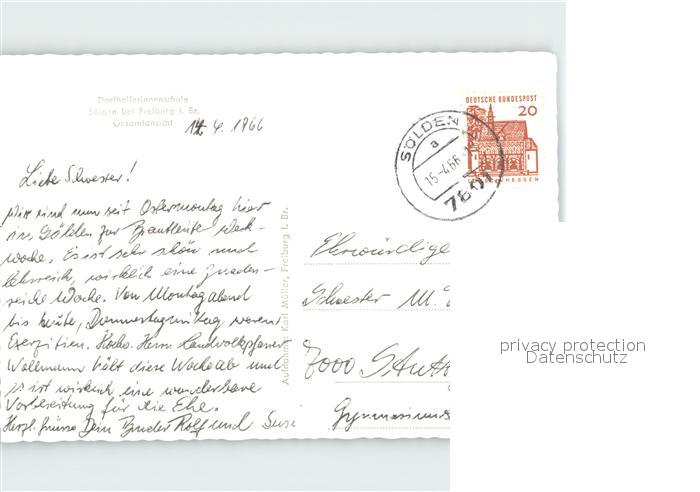 Dorfhelferinnenschule
Sölden bei Freiburg i. Br.
Gesamtansicht
14.4.1966
Liebe Schwester!
Wir sind nun seit Ostermontag hier
in Sölden zur Brautleute Woch-
woche. Es ist sehr schön und
lehrreich, wirklich eine gnaden-
reiche Woche. Von Montagabend
bis heute, Donnerstagmittag waren
Exerzitien. Hochw. Herr Landvolkpfarrer
Wollmann hält diese Woche ab und
es ist wirklich eine wunderbare
Vorbereitung für die Ehe.
Herzl. Grüsse Dein Bruder Rolf und Susi
Aufnahme: Karl Müller, Freiburg i. Br.
DEUTSCHE BUNDESPOST
20
HESSEN
SÖLDEN
a
15.-4.66
7801
Ehrwürdige
Schwester M.
7000 Stutt
Gymnasium
privacy protection
Datenschutz